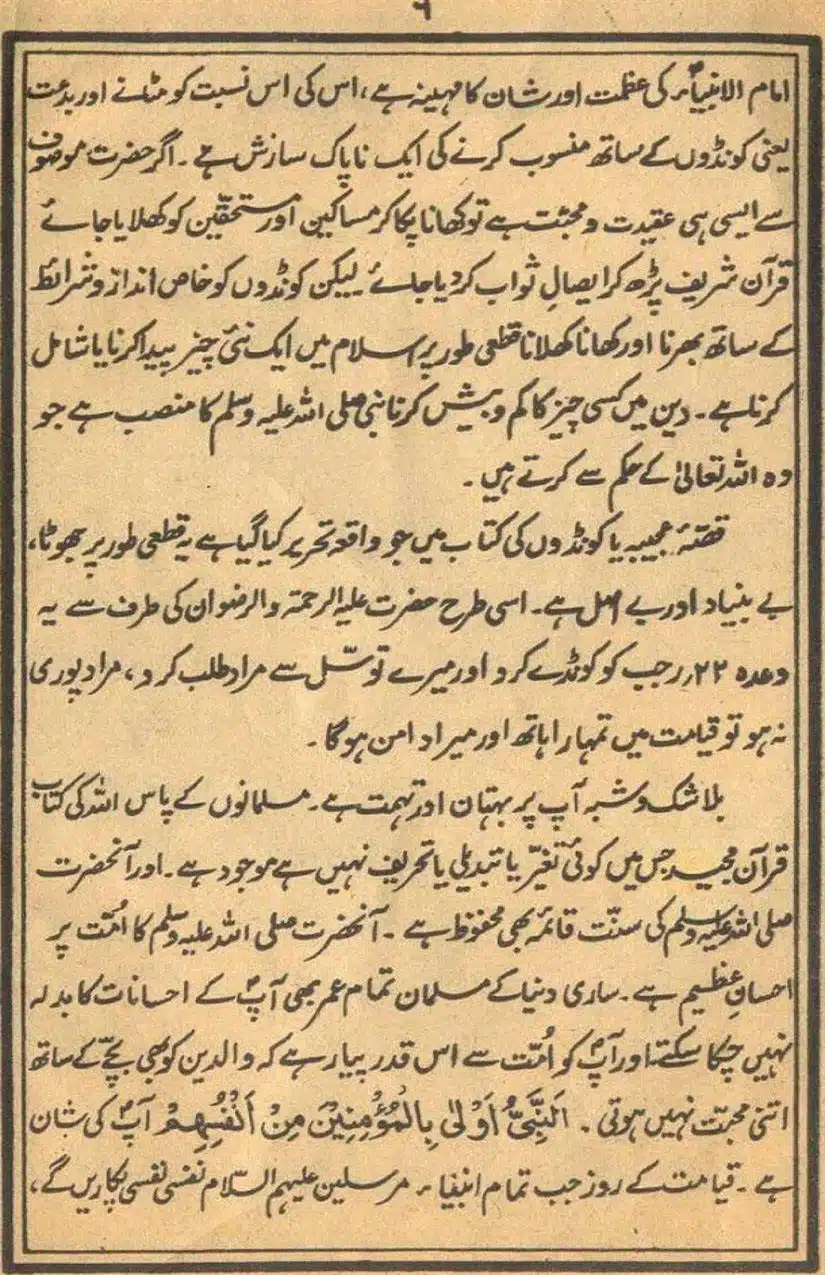 ۶
امام الانبیاءؐ کی عظمت اور شان کا مہینہ ہے، اس کی اس نسبت کو مٹانے اور بدعت
یعنی کونڈوں کے ساتھ منسوب کرنے کی ایک ناپاک سازش ہے۔ اگر حضرت موصوف
سے ایسی ہی عقیدت و محبت ہے تو کھانا پکا کر مساکین اور مستحقین کو کھلایا جائے
قرآن شریف پڑھ کر ایصالِ ثواب کر دیا جائے لیکن کونڈوں کو خاص انداز و شرائط
کے ساتھ بھرنا اور کھانا کھلانا قطعی طور پر اسلام میں ایک نئی چیز پیدا کرنا یا شامل
کرنا ہے۔ دین میں کسی چیز کا کم و بیش کرنا نبی صلی اللہ علیہ وسلم کا منصب ہے جو
وہ اللہ تعالیٰ کے حکم سے کرتے ہیں۔
قصّۂ عجیبہ یا کونڈوں کی کتاب میں جو واقعہ تحریر کیا گیا ہے یہ قطعی طور پر جھوٹا،
بے بنیاد اور بے اصل ہے۔ اسی طرح حضرت علیہ الرحمۃ والرضوان کی طرف سے یہ
وعدہ ۲۲؍ رجب کو کونڈے کرو اور میرے توسّل سے مراد طلب کرو، مراد پوری
نہ ہو تو قیامت میں تمہارا ہاتھ اور میرا دامن ہوگا۔
بلا شک و شبہ آپ پر بہتان اور تہمت ہے۔ مسلمانوں کے پاس اللہ کی کتاب
قرآن مجید جس میں کوئی تغیّر یا تبدیلی یا تحریف نہیں ہے موجود ہے۔ اور آنحضرت
صلی اللہ علیہ وسلم کی سنّت قائمہ بھی محفوظ ہے۔ آنحضرت صلی اللہ علیہ وسلم کا اُمّت پر
احسانِ عظیم ہے۔ ساری دنیا کے مسلمان تمام عمر بھی آپؐ کے احسانات کا بدلہ
نہیں چکا سکتے اور آپؐ کو اُمّت سے اس قدر پیار ہے کہ والدین کو بھی بچّے کے ساتھ
اتنی محبّت نہیں ہوتی۔ اَلنَّبِیُّ اَوْلٰی بِالْمُؤْمِنِیْنَ مِنْ اَنْفُسِهِمْ آپؐ کی شان
ہے۔ قیامت کے روز جب تمام انبیاء مرسلین علیہم السّلام نفسی نفسی پکاریں گے،